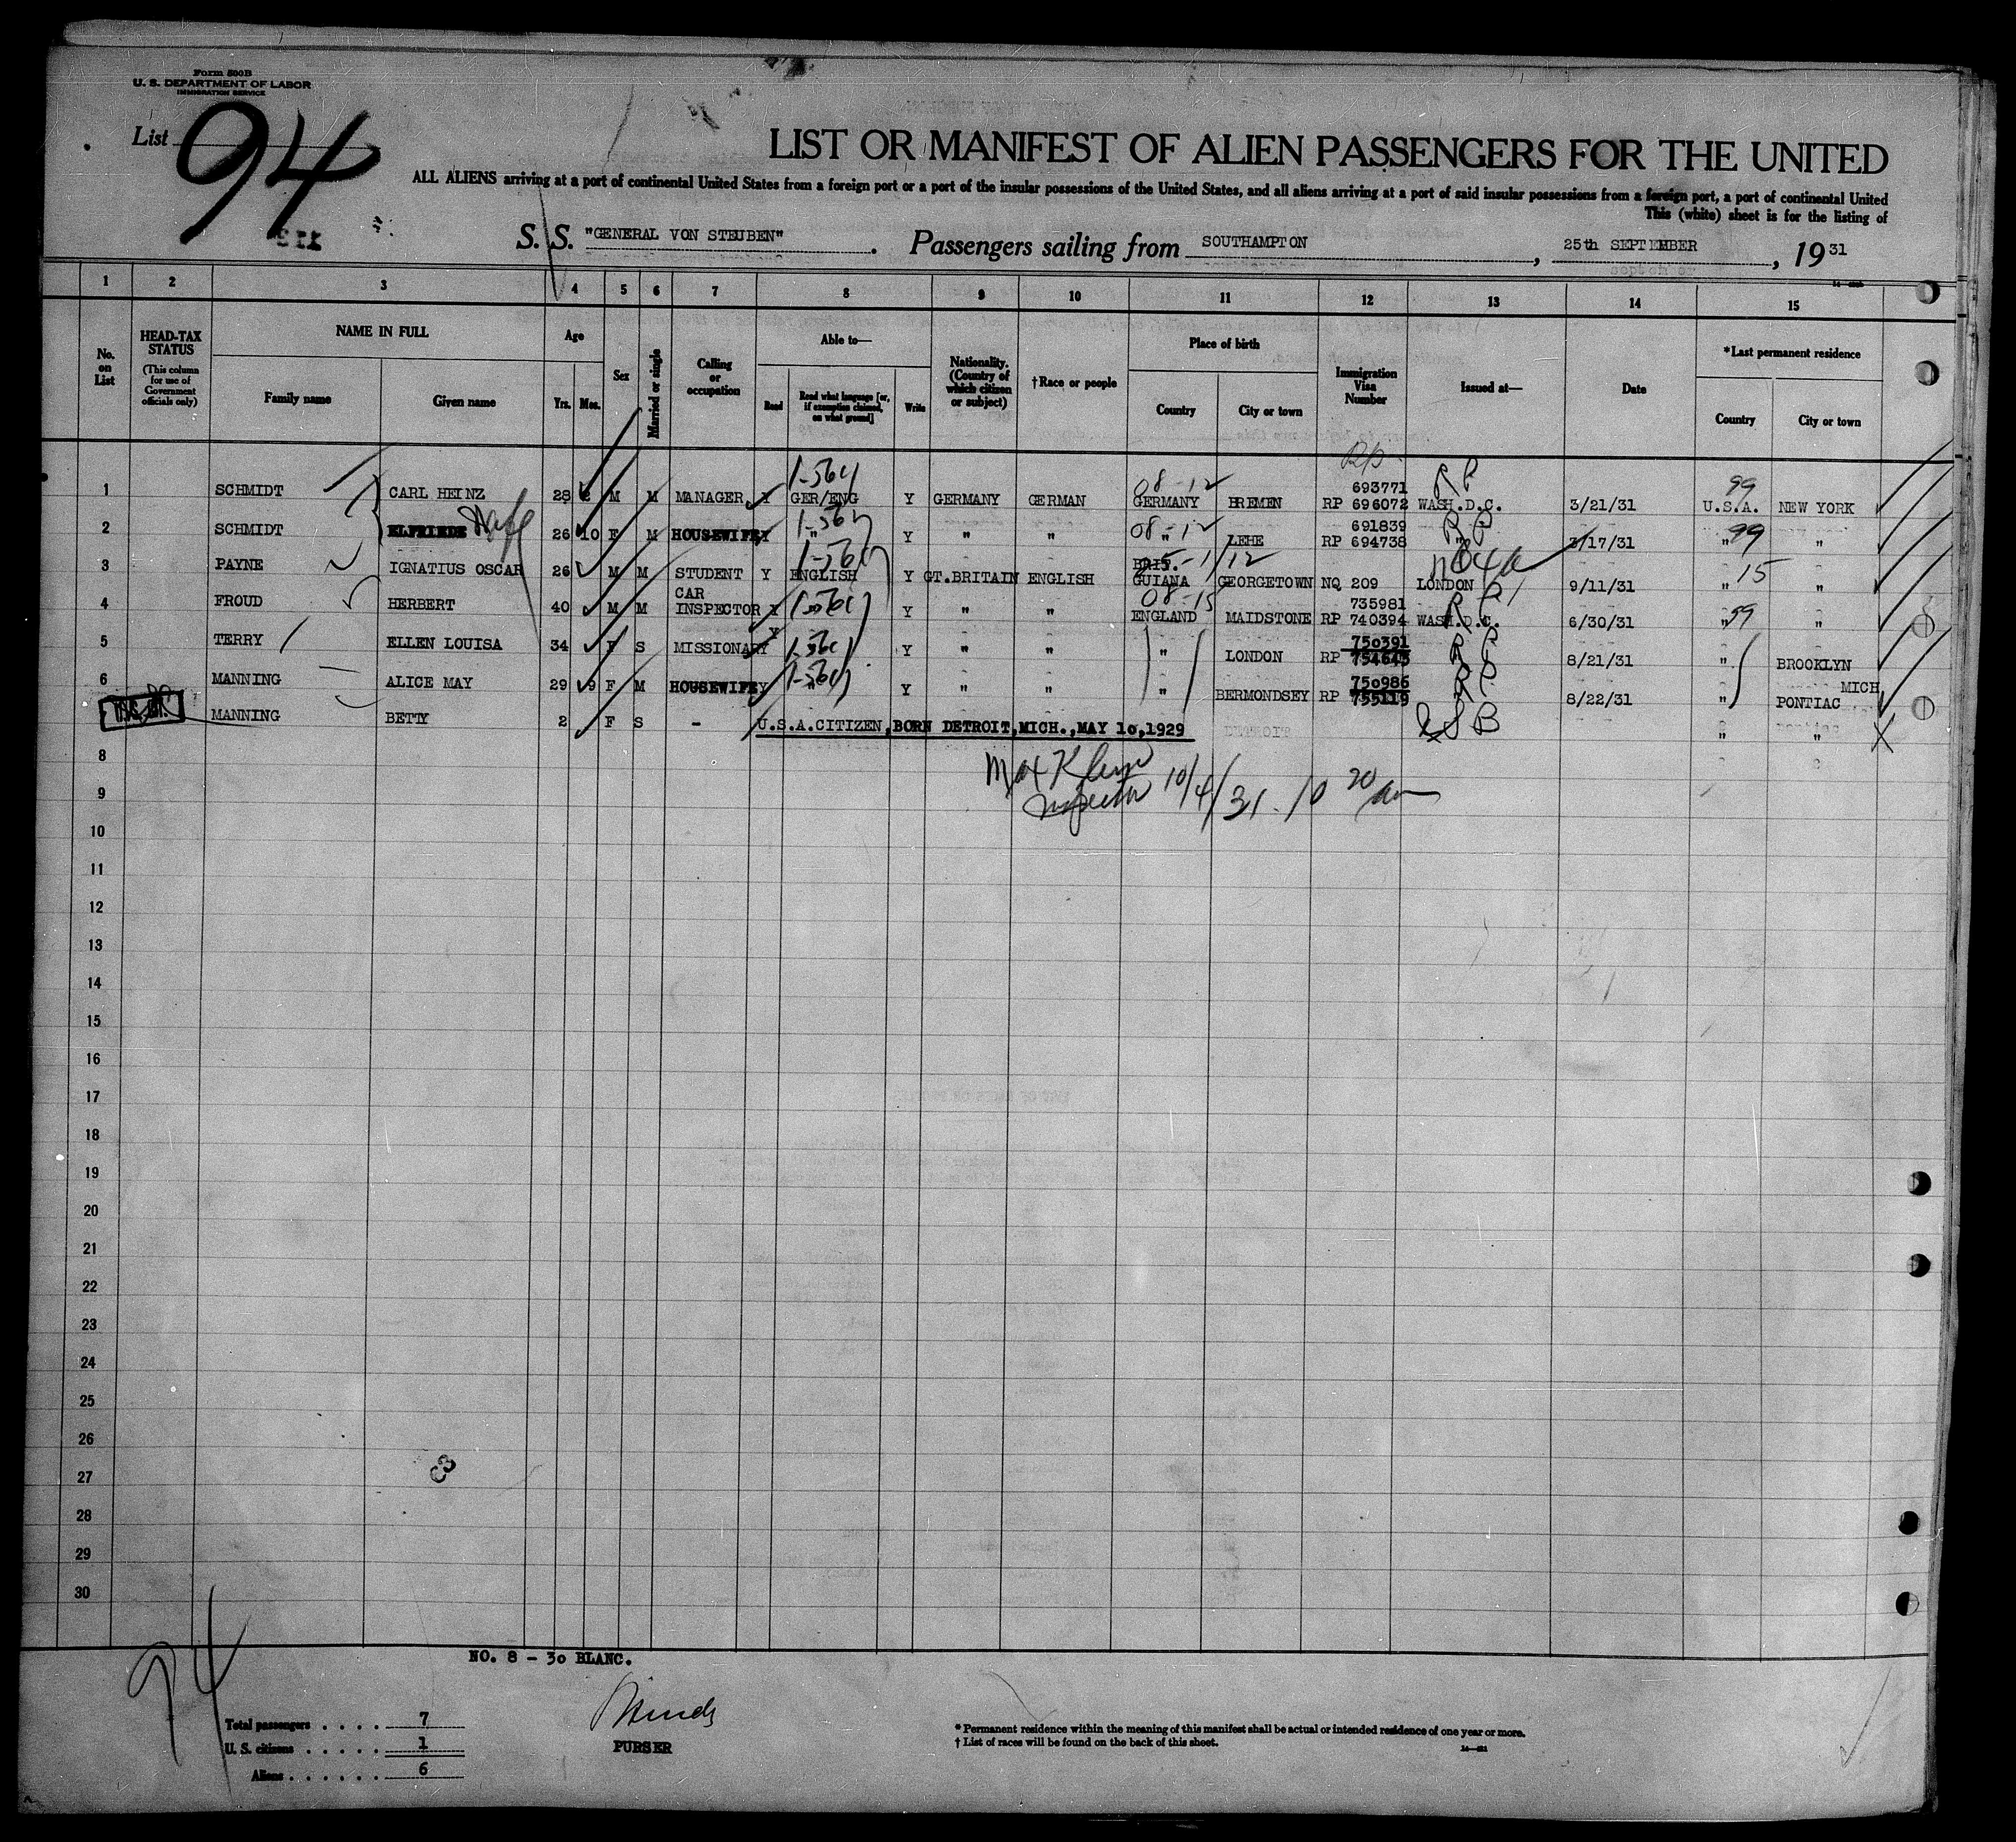 Form 500B
U. S. DEPARTMENT OF LABOR
IMMIGRATION SERVICE
List 94
LIST OR MANIFEST OF ALIEN PASSENGERS FOR THE UNITED
ALL ALIENS arriving at a port of continental United States from a foreign port or a port of the insular possessions of the United States, and all aliens arriving at a port of said insular possessions from a foreign port, a port of continental United
This (white) sheet is for the listing of
S. S. "GENERAL VON STEUBEN". Passengers sailing from SOUTHAMPTON, 25th SEPTEMBER, 1931
1 2 3 4 5 6 7 8 9 10 11 12 13 14 15
No. on List
HEAD-TAX STATUS
(This column for use of Government officials only)
NAME IN FULL
Family name
Given name
Age
Yrs. Mos.
Sex
Married or single
Calling or occupation
Able to—
Read
Read what language [or, if exemption claimed, on what ground]
Write
Nationality. (Country of which citizen or subject)
†Race or people
Place of birth
Country
City or town
Immigration Visa Number
Issued at—
Date
*Last permanent residence
Country
City or town
RP
1-564 08-12 693771 RP 99
1 SCHMIDT CARL HEINZ 28 M M MANAGER Y GER/ENG Y GERMANY GERMAN GERMANY BREMEN RP 696072 WASH.D.C. 3/21/31 U.S.A. NEW YORK
1-564 08-12 691839 RP 99
2 SCHMIDT ELFRIEDE 26 10 F M HOUSEWIFE Y " Y " " " LEHE RP 694738 " /17/31 " "
1-564 BRIT. 15
3 PAYNE IGNATIUS OSCAR 26 M M STUDENT Y ENGLISH Y GT.BRITAIN ENGLISH GUIANA GEORGETOWN NQ 209 LONDON 9/11/31 " "
CAR 1-564 08-15 735981 99
4 FROUD HERBERT 40 M M INSPECTOR Y " Y " " ENGLAND MAIDSTONE RP 740394 WASH.D.C. 6/30/31 " "
1-564 750391 RP
5 TERRY ELLEN LOUISA 34 F S MISSIONARY Y Y " " " LONDON RP 754645 8/21/31 " BROOKLYN
1-564 750986 RP MICH
6 MANNING ALICE MAY 29 9 F M HOUSEWIFE Y " Y " " " BERMONDSEY RP 755119 8/22/31 " PONTIAC
MANNING BETTY 2 F S - U.S.A.CITIZEN, BORN DETROIT, MICH., MAY 10, 1929 USB " "
8
Max
Inspector 10/4/31 10 20 am
9
10
11
12
13
14
15
16
17
18
19
20
21
22
23
24
25
26
27
28
29
30
NO. 8 - 30 BLANC.
94
Total passengers . . . . 7
U. S. citizens . . . . . 1
Aliens . . . . . . 6
PURSER
* Permanent residence within the meaning of this manifest shall be actual or intended residence of one year or more.
† List of races will be found on the back of this sheet.